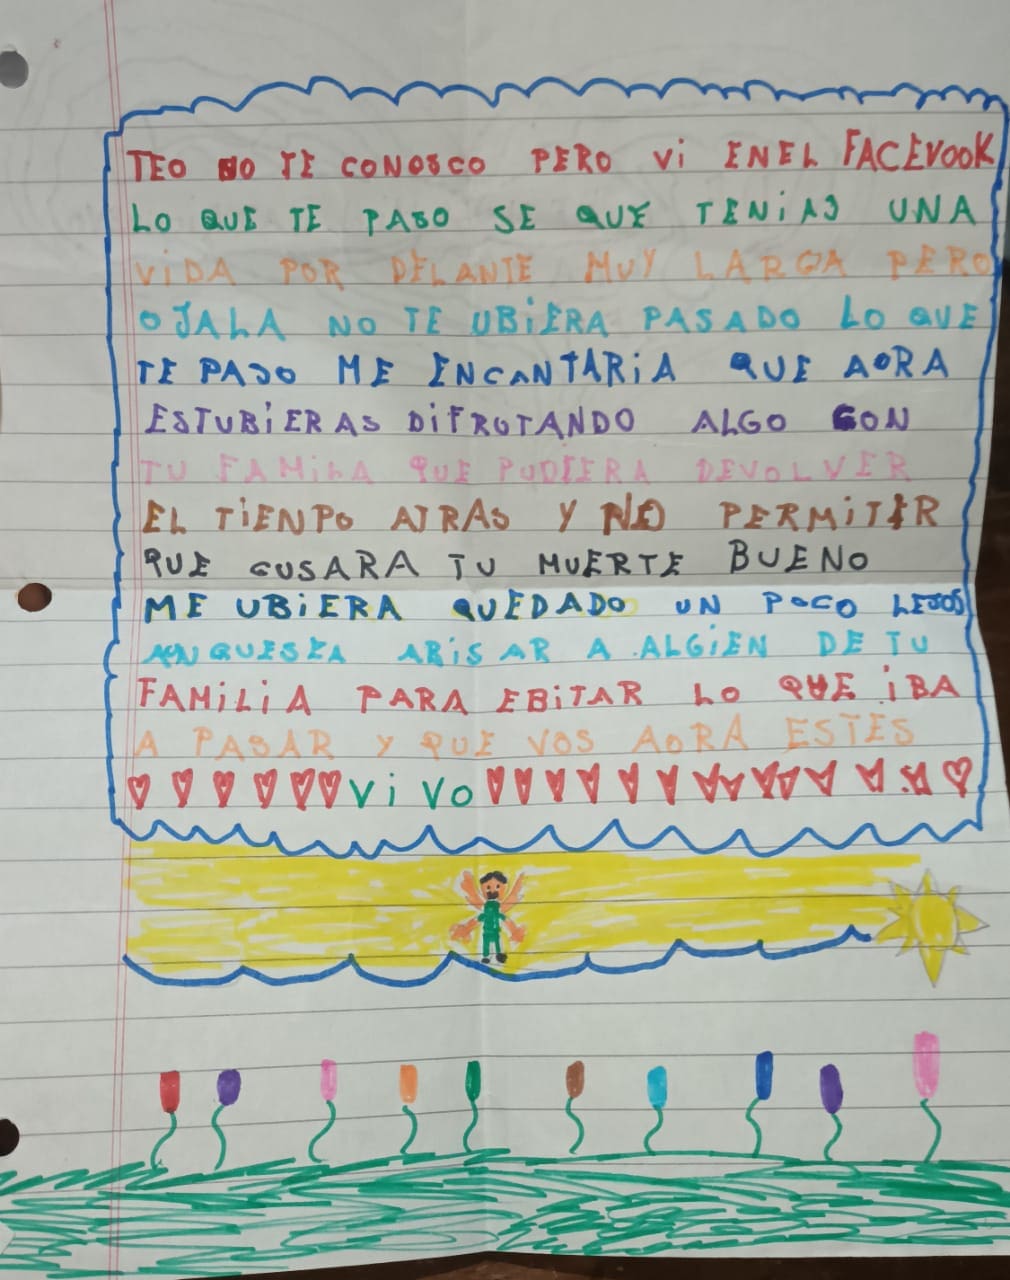 TEO NO TE CONOSCO PERO Vi ENEL FACEVOOK
LO QUE TE PASO SE QUE TENiAS UNA
ViDA POR DELANTE MUY LARGA PERO
OJALA NO TE UBiERA PASADO LO QUE
TE PASO ME ENCANTARiA QUE AORA
ESTUBiERAS DiFRUTANDO ALGO CON
TU FAMiLA QUE PUDIERA DEVOLVER
EL TiENPO ATRAS Y NO PERMiTIR
QUE CUSARA TU MUERTE BUENO
ME UBiERA QUEDADO UN POCO LEJOS
AUNQUESEA ABiSAR A ALGiEN DE TU
FAMiLiA PARA EBiTAR LO QUE iBA
A PASAR Y QUE VOS AORA ESTES
ViVO